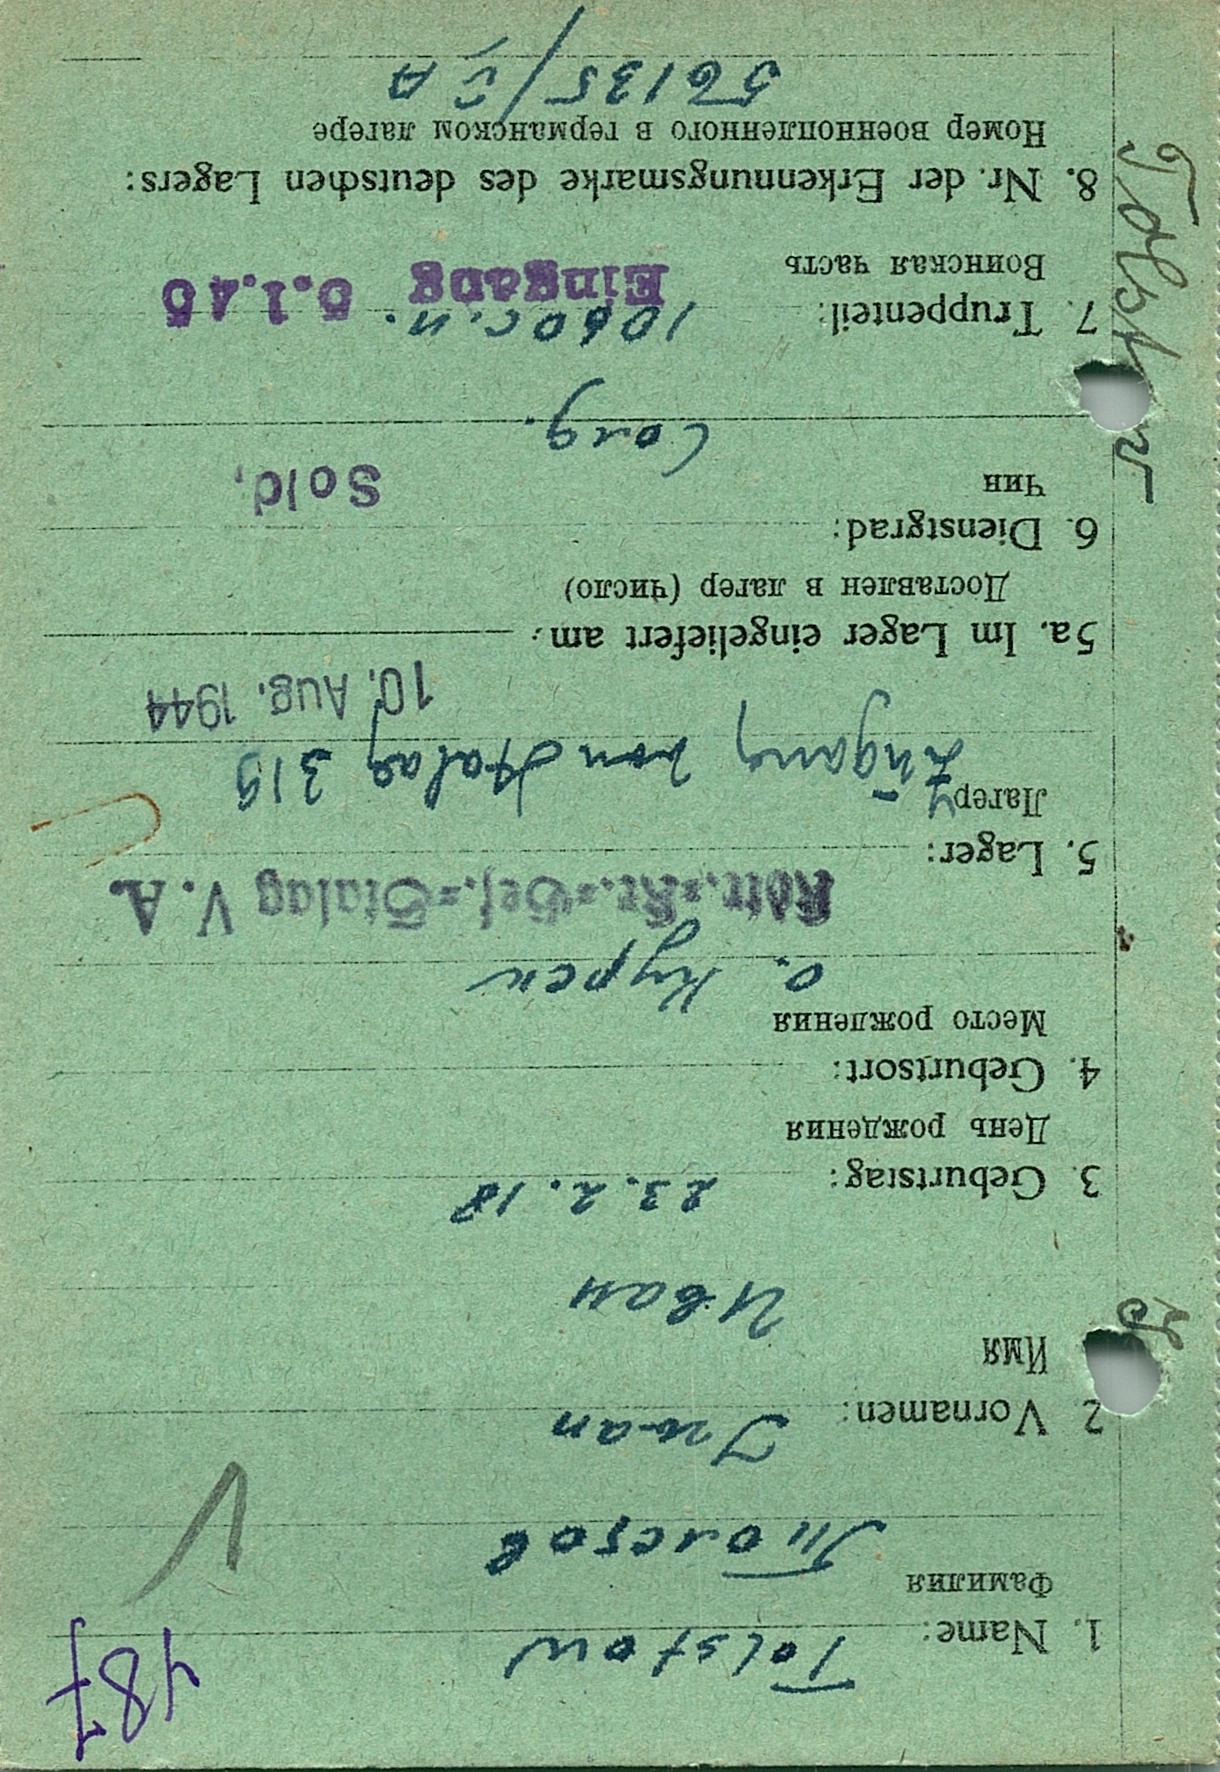 487
1. Name: Tolstow
Фамилия Толстов
2. Vornamen: Iwan
Имя Иван
3. Geburtstag: 23.2.18
День рождения
4. Geburtsort:
Место рождения
с. Курск
Kdtr.=Kr.=Gef.=Stalag V. A.
5. Lager:
Лагер Zugang von Stalag 319
10. Aug. 1944
5a. Im Lager eingeliefert am:
Доставлен в лагер (число)
6. Dienstgrad: Sold.
Чин
Солд.
7. Truppenteil: 1060 с.п.
Воинская часть Eingang 5.1.45
8. Nr. der Erkennungsmarke des deutschen Lagers:
Номер военнопленного в германском лагере
56135/V A
Tolstow